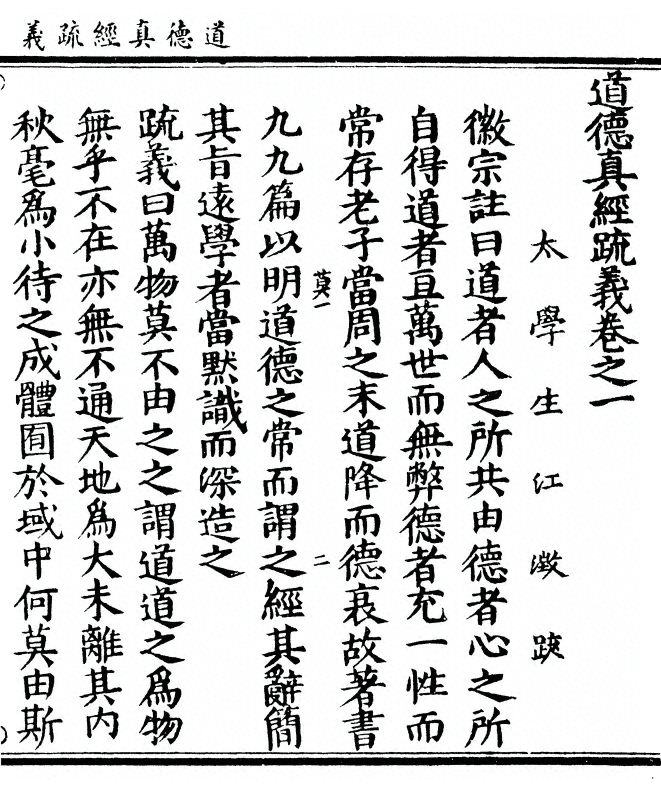 道德真經疏義
道德真經疏義卷之一
太學生江澂疏
徽宗註曰道者人之所共由德者心之所
自得道者亘萬世而無弊德者充一性而
常存老子當周之末道降而德衰故著書
莫一 二
九九篇以明道德之常而謂之經其辭簡
其旨遠學者當默識而深造之
疏義曰萬物莫不由之之謂道道之爲物
無乎不在亦無不通天地爲大未離其内
秋毫爲小待之成體囿於域中何莫由斯